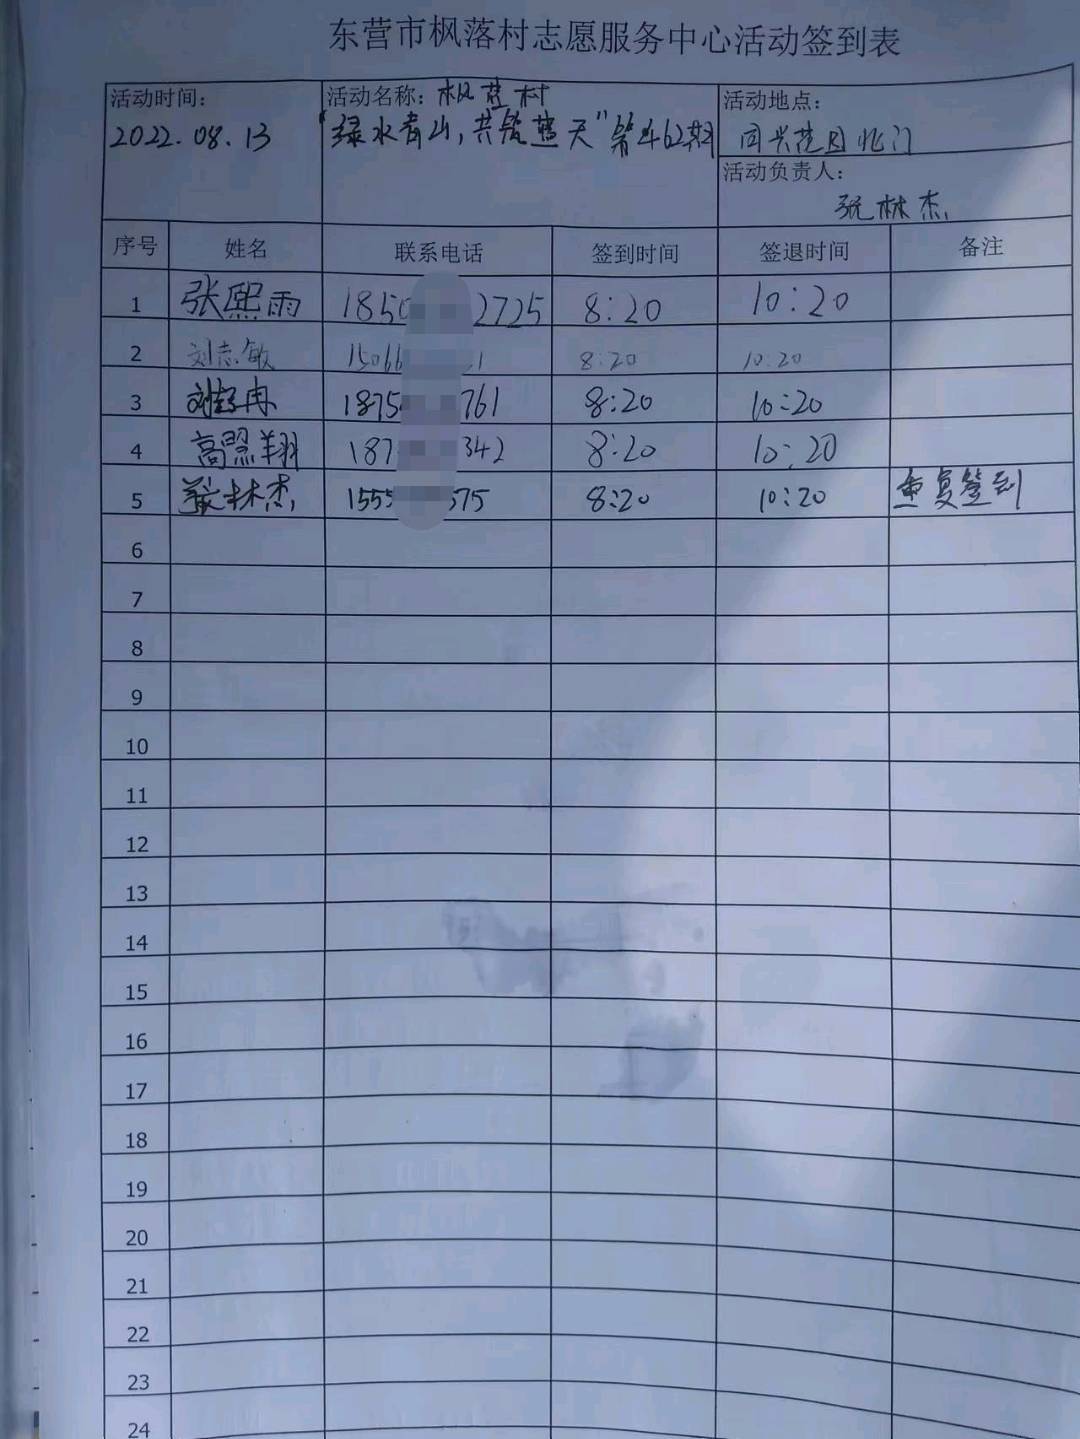 东营市枫落村志愿服务中心活动签到表
活动时间：
2022.08.13
活动名称：枫落村
"绿水青山，共筑蓝天"第462期
活动地点：
同兴花园北门
活动负责人：
张林杰
序号 姓名 联系电话 签到时间 签退时间 备注
1 张熙雨 1850 2725 8:20 10:20
2 刘志敏 15066 1 8:20 10:20
3 1875 761 8:20 10:20
4 高照翔 187 342 8:20 10:20
5 林杰 1555 575 8:20 10:20 重复签到
6
7
8
9
10
11
12
13
14
15
16
17
18
19
20
21
22
23
24